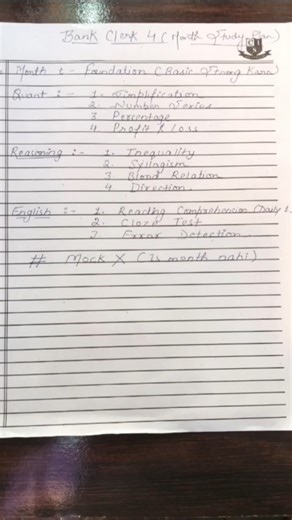 Bank Clerk 4 (Month Study Plan)
Month :- Foundation (Basic Strong Karna)
Quant :- 1. Simplification
2. Number Series
3 Percentage
4. Profit & Loss
Reasoning :- 1. Inequality
2. Syllogism
3. Blood Relation
4 Direction
English :- 1. Reading Comprehension (Daily 1
2. Cloze Test
3. Error Detection
# Mock X (Is month nahi)